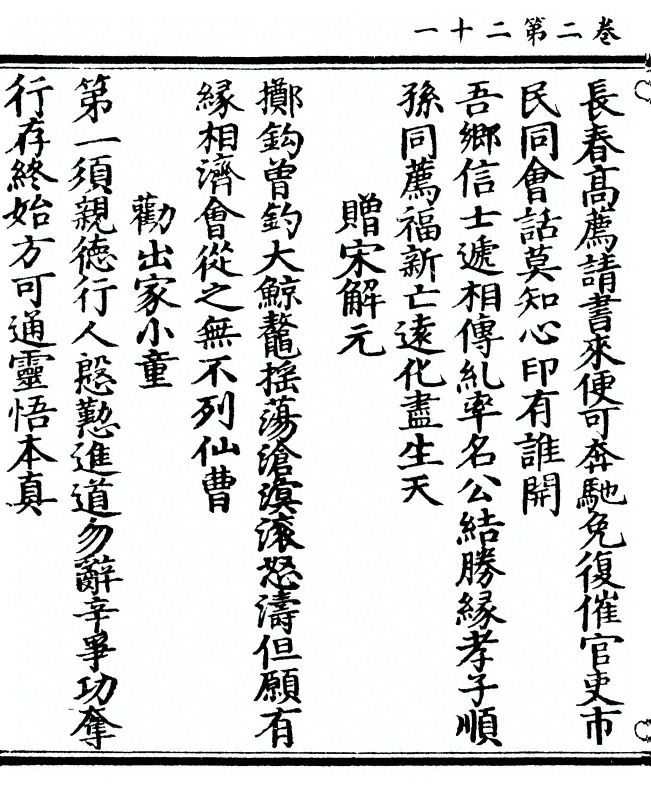 卷二第二十一
長春高薦請書來便可奔馳免復催官吏市
民同會話莫知心印有誰開
吾鄉信士遞相傳糺率名公結勝緣孝子順
孫同薦福新亡遠化盡生天
贈宋解元
擲鈎曾釣大鯨鼇摇蕩滄溟滚怒濤但願有
緣相濟會從之無不列仙曹
勸出家小童
第一須親德行人慇懃進道勿辭辛爭功奪
行存終始方可通靈悟本真